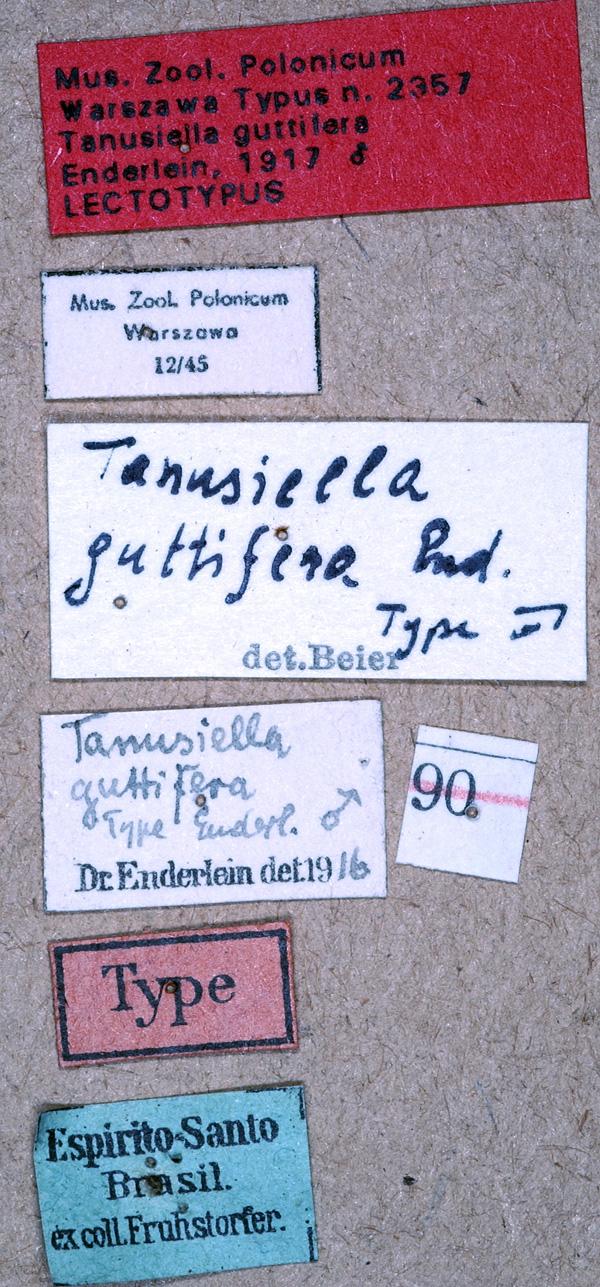 Mus. Zool. Polonicum
Warszawa Typus n. 2357
Tanusiella guttifera
Enderlein, 1917 ♂
LECTOTYPUS
Mus. Zool. Polonicum
Warszawa
12/45
Tanusiella
guttifera End.
Type ♂
det. Beier
Tanusiella
guttifera
Type Enderl. ♂
Dr. Enderlein det. 1916
90
Type
Espirito-Santo
Brasil.
ex coll. Fruhstorfer.